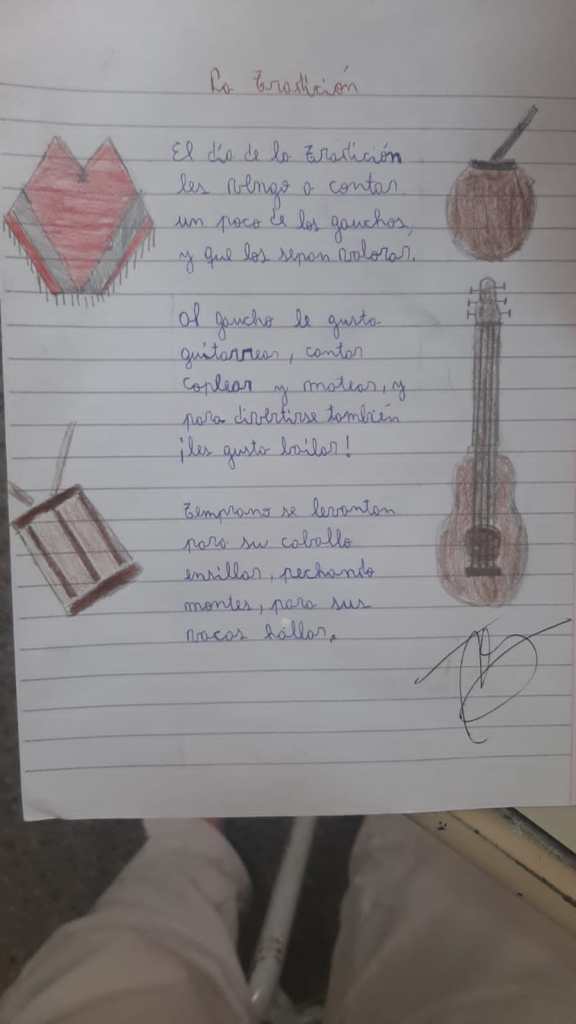 La Tradición
El día de la tradición
les vengo a contar
un poco de los gauchos,
y que los sepan valorar.
Al gaucho le gusta
guitarrear, cantar
coplear y matear, y
para divertirse también
¡les gusta bailar!
Temprano se levantan
para su caballo
ensillar, pechando
montes, para sus
vacas hallar.